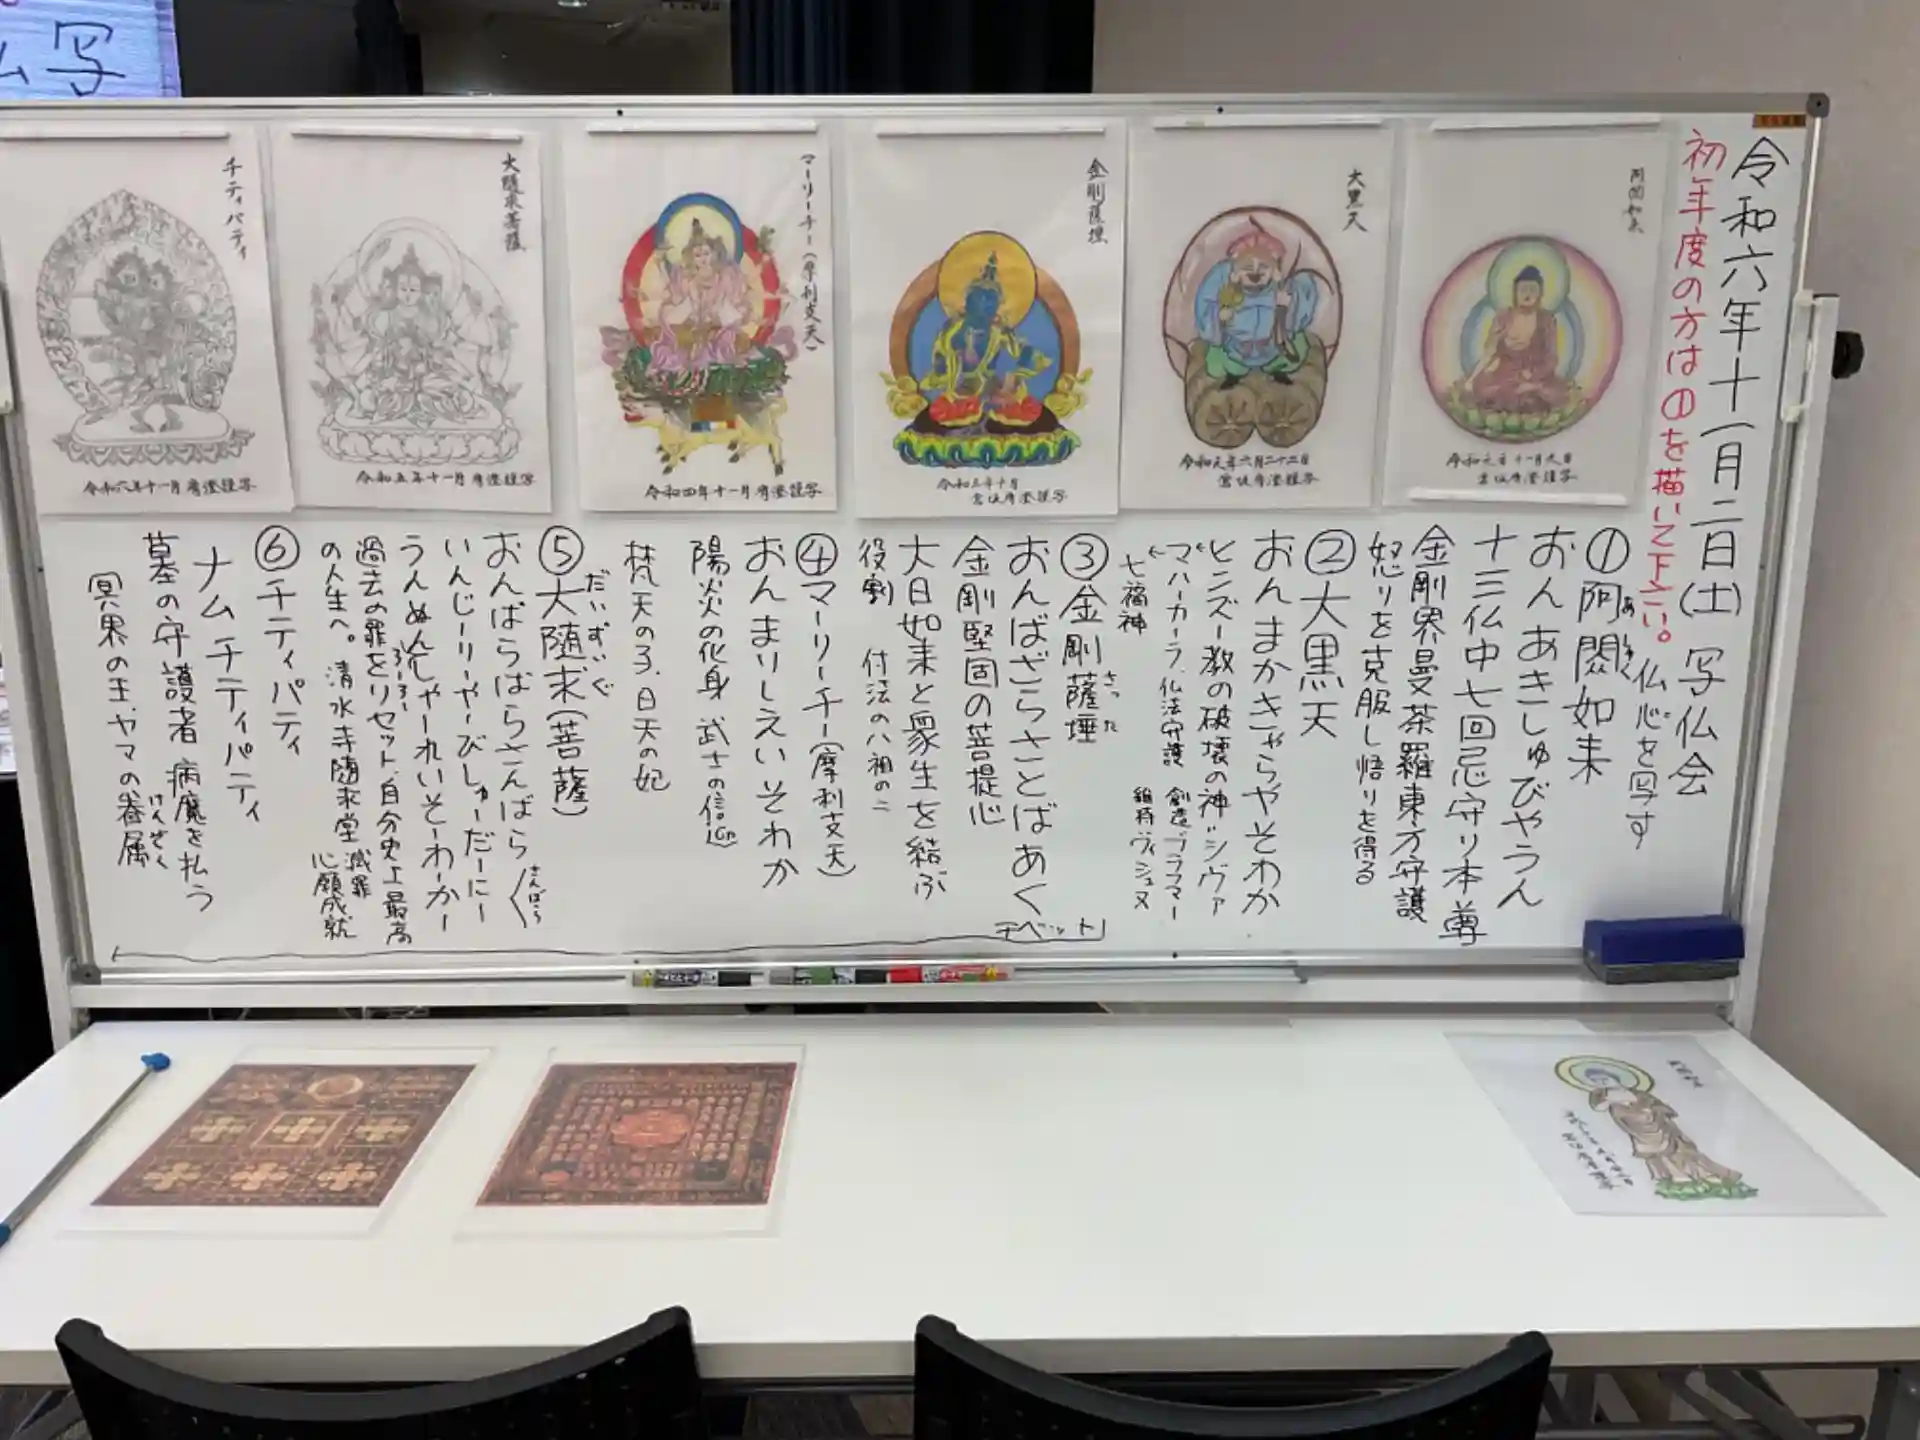 令和六年十一月二日(土) 写仏会
仏心を写す
初年度の方は①を描いて下さい。
①阿閦如来
あしゅく
おんあきしゅびやうん
十三仏中七回忌守り本尊
金剛界曼荼羅東方守護
怒りを克服し悟りを得る
②大黒天
おんまかきゃらやそわか
ヒンズー教の破壊の神シヴァ
マハーカーラ、仏法守護 創造ブラフマー
維持ヴィシュヌ
七福神
③金剛薩埵
さった
おんばざらさとばあく
金剛堅固の菩提心
大日如来と衆生を結ぶ
役割 付法の八祖の二
チベット
④マーリーチー(摩利支天)
おんまりしえいそわか
陽炎の化身 武士の信仰
梵天の子、日天の妃
⑤大随求(菩薩)
だいずぐ
おんばらばらさんばら
さんばら
いんじーりやーびしゅーだーにー
うんぬん しゃーれいそーわーかー
ろーろー
過去の罪をリセット、自分史上最高
の人生へ。清水寺随求堂 滅罪
心願成就
⑥チティパティ
ナム チティパティ
墓の守護者 病魔を払う
冥界の王、ヤマの眷属
けんぞく
阿閦如来
令和元年十一月九日
大黒天
令和元年六月二十二日
金剛薩埵
令和三年十月
マーリーチー(摩利支天)
令和四年十一月
大隨求菩薩
令和五年十一月
チティパティ
令和六年十一月
写